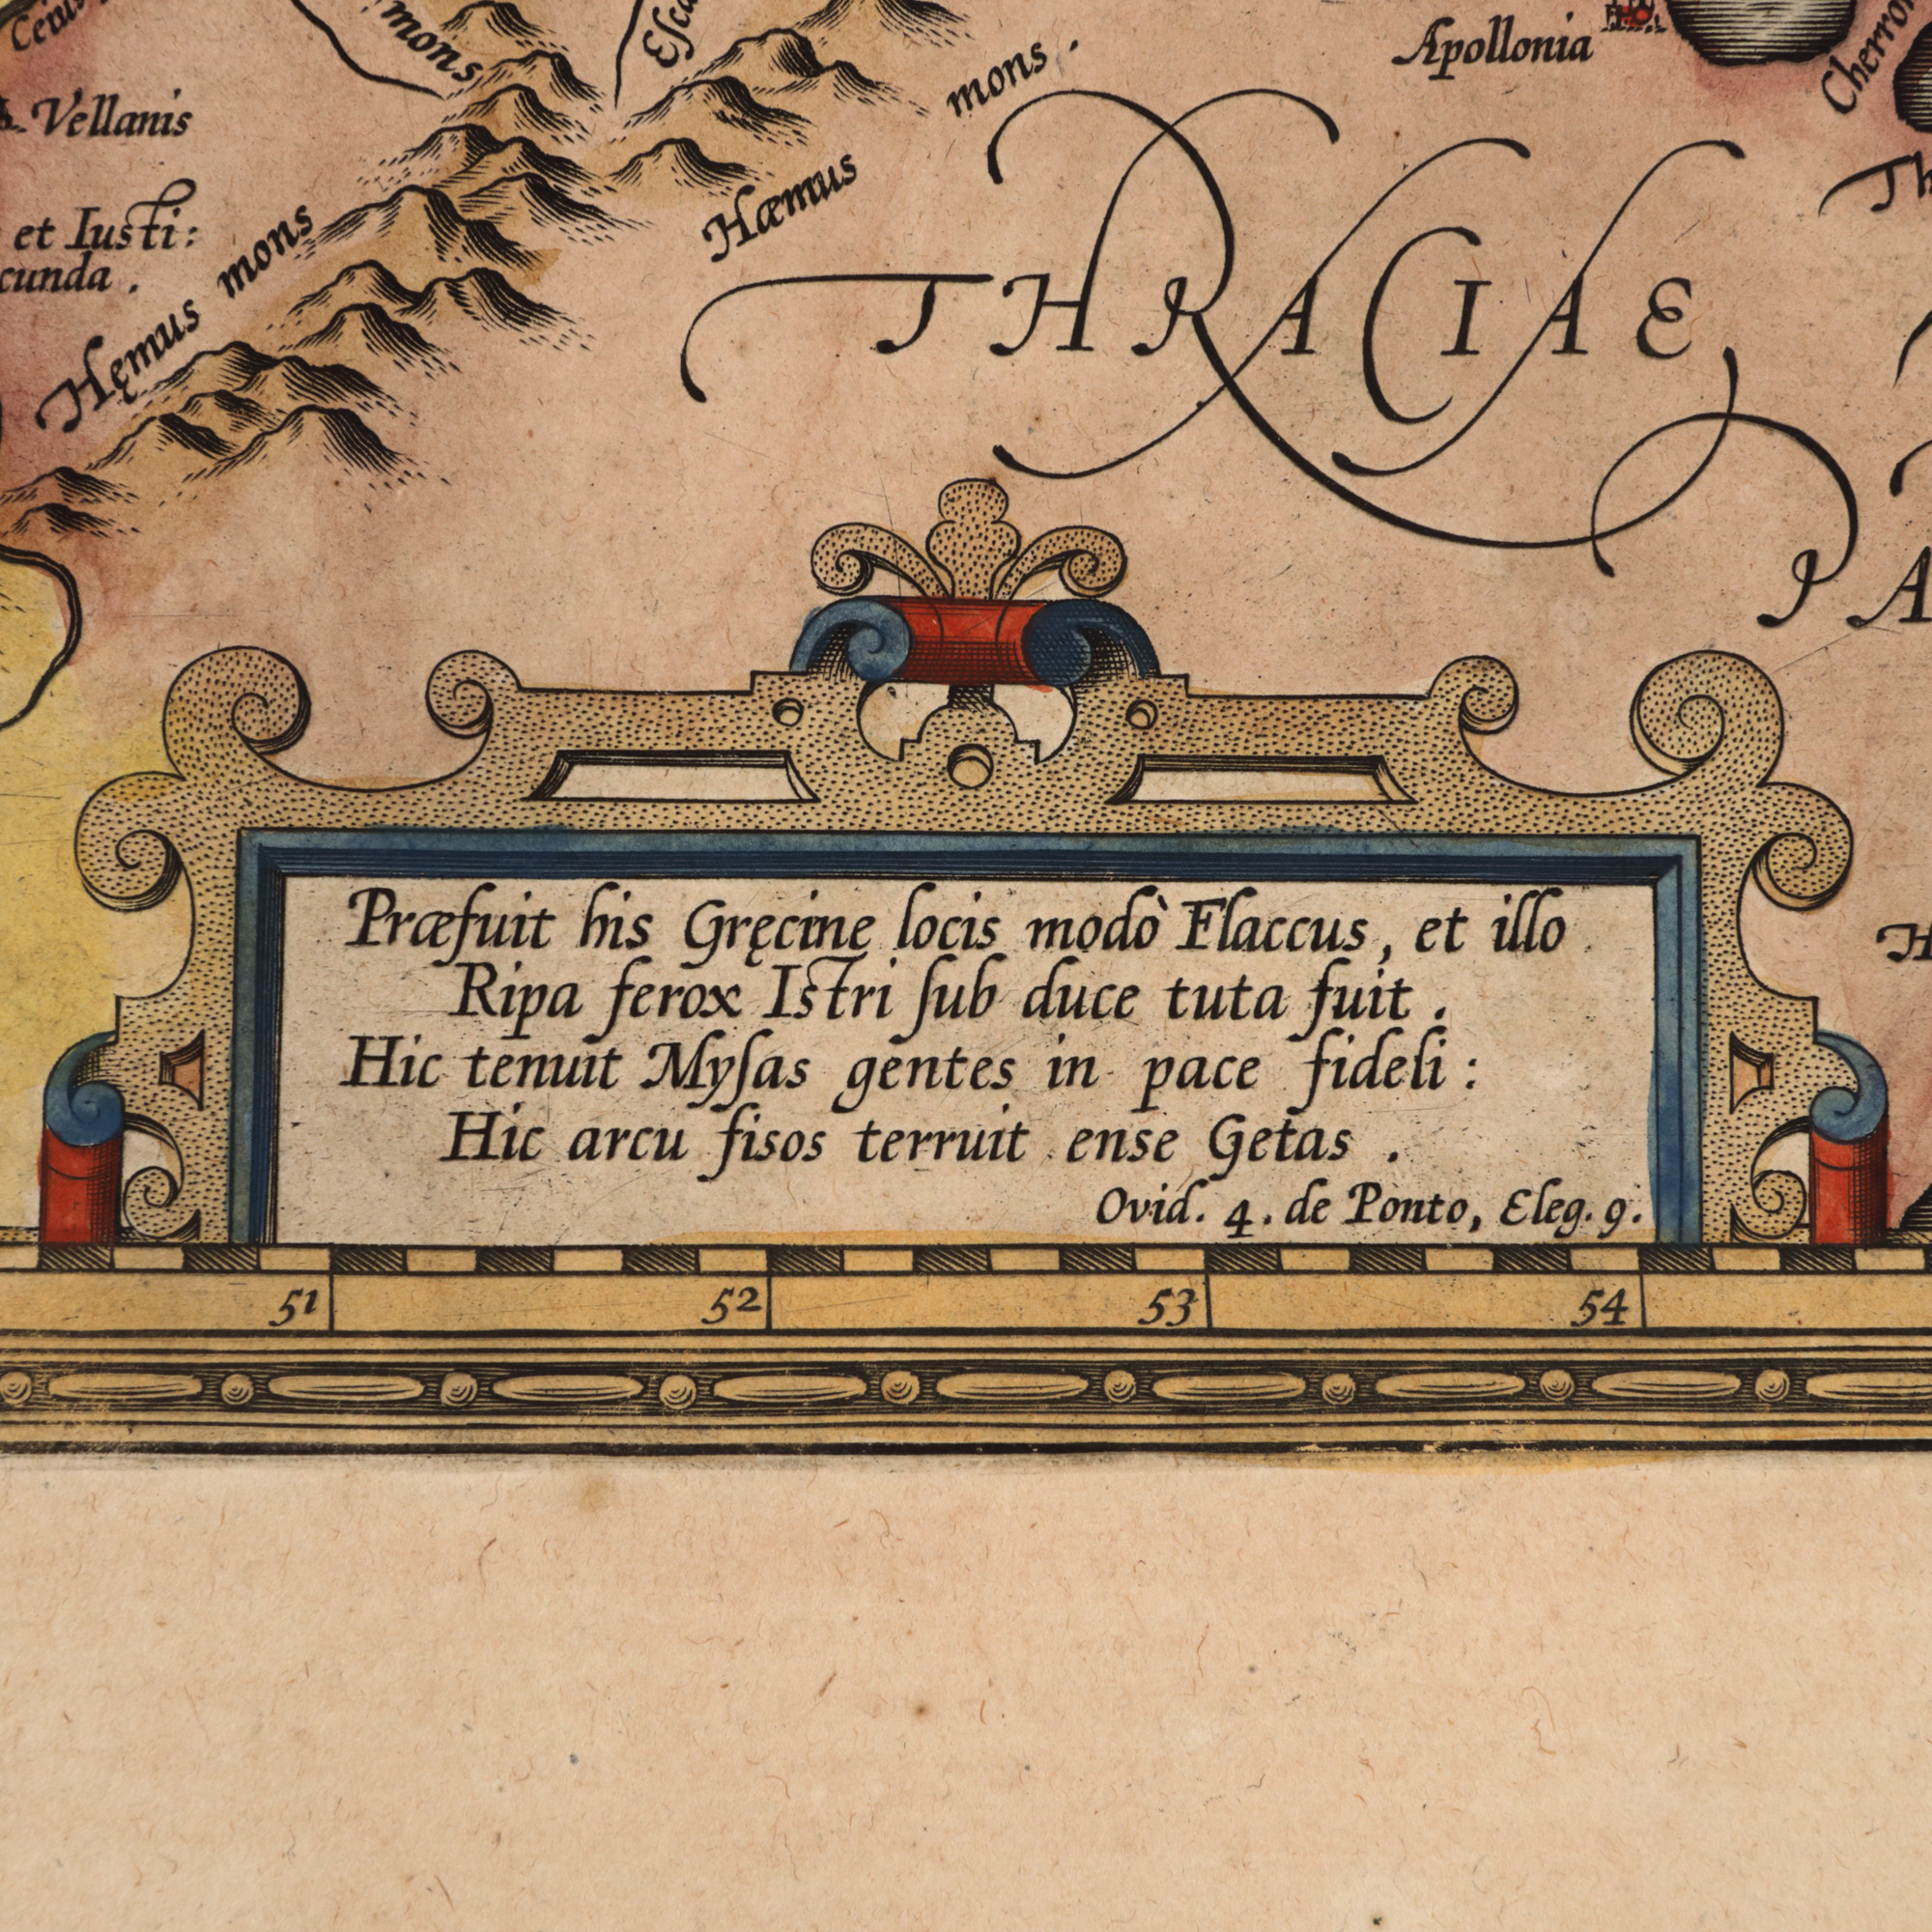 mons
Apollonia
mons.
Vellanis
Hæmus
et Iusti:
cunda.
Hęmus mons
THRACIAE
PA
Præfuit his Gręcine locis modò Flaccus, et illo
Ripa ferox Istri ſub duce tuta fuit.
Hic tenuit Myſas gentes in pace fideli:
Hic arcu fisos terruit ense Getas.
Ovid. 4. de Ponto, Eleg. 9.
51 52 53 54